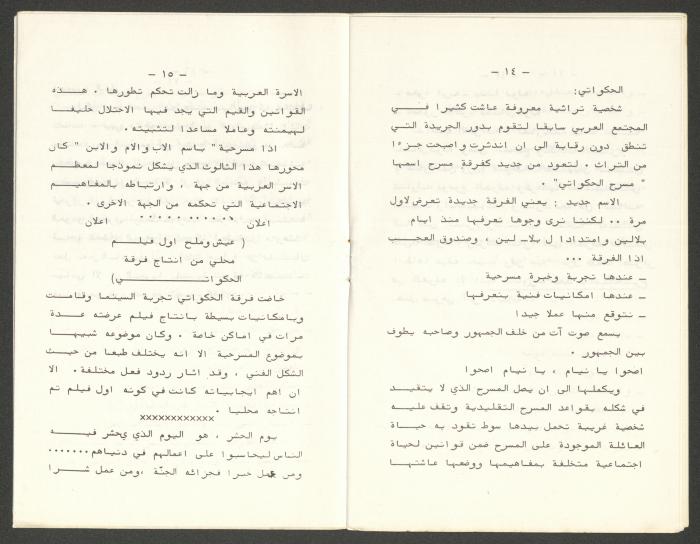 - ١٤ -
الحكواتي:
شخصية تراثية معروفة عاشت كثيرا فــــي
المجتمع العربي سابقا لتقوم بدور الجريدة التي
تنطق دون رقابة الى ان اندثرت واصبحت جزءا
من التراث . لتعود من جديد كفرقة مسرح اسمها
" مسرح الحكواتي" .
الاسم جديد : يعني الفرقة جديدة تعرض لاول
مرة .. لكننا نرى وجوها نعرفها منذ ايام
بلالين وامتدادا ل بلا- لين ، وصندوق العجـــب
اذا الفرقة ...
ـ عندها تجربة وخبرة مسرحية
ـ عندها امكانيات فنية بنعرفها
ـ نتوقع منها عملا جيدا
يسمع صوت آت من خلف الجمهور وصاحبه يطوف
بين الجمهور .
اصحوا يا نيام ، يا نيام اصحوا
ويكملها الى ان يصل المسرح الذي لا يتقيـــد
في شكله بقواعد المسرح التقليدية وتقف عليــه
شخصية غريبة تحمل بيدها سوط تقود به حيـــاة
العائلة الموجودة على المسرح ضمن قوانين لحياة
اجتماعية متخلفة بمفاهيمها ووضعها عاشتهـــا
- ١٥ -
الاسرة العربية وما زالت تحكم تطورها . هـــذه
القوانين والقيم التي يجد فيها الاحتلال حليفـــا
لهيمنته وعاملا مساعدا لتثبيته.
اذا مسرحية " باسم الاب والام والابن " كان
محورها هذا الثالوث الذي يشكل نموذجا لمعظــم
الاسر العربية من جهة ، وارتباطه بالمفاهيــم
الاجتماعية التي تحكمه من الجهة الاخرى .
اعلان ............ اعلان
( عيش وملح اول فيلـــم
محلي من انتاج فرقة
الحكواتــــي)
خاضت فرقة الحكواتي تجربة السينما وقامــت
وبامكانيات بسيطة بانتاج فيلم عرضته عـــدة
مرات في اماكن خاصة . وكان موضوعه شبيهــا
بموضوع المسرحية الا انه يختلف طبعا من حيــث
الشكل الفني ، وقد اثار ردود فعل مختلفة. الا
ان اهم ايجابياته كانت في كونه اول فيلم تم
انتاجه محليا .
xxxxxxxxxxxx
يوم الحشر ، هو اليوم الذي يحشر فيـــه
الناس ليحاسبوا على اعمالهم في دنياهم.......
ومن عمل خيرا فجزائه الجنّة ،ومن عمل شــرا